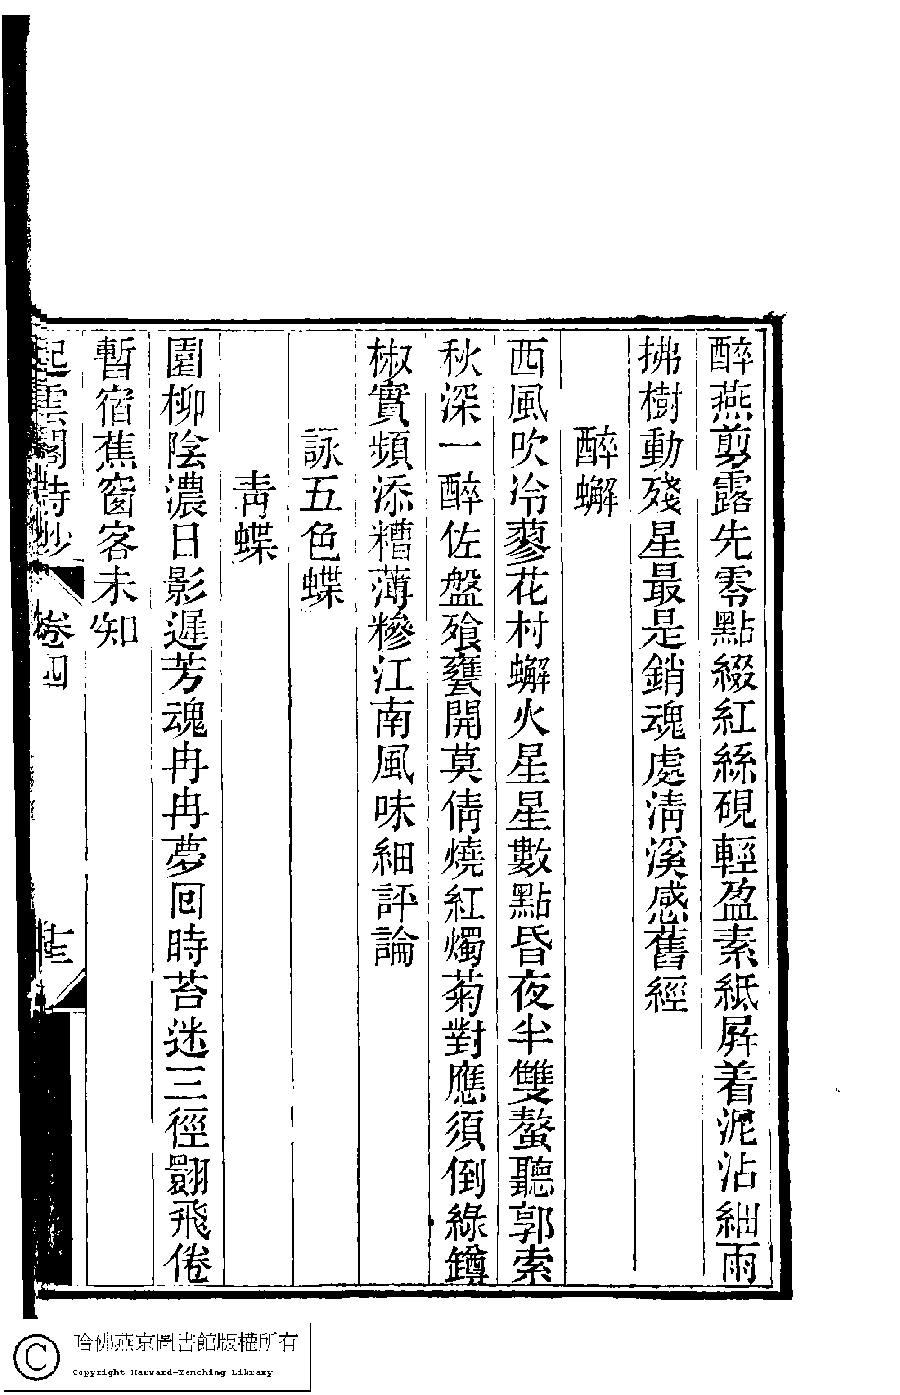 醉燕剪露先零點綴紅絲硯輕盈素紙屏着泥沾細雨
拂樹動殘星最是銷魂處淸溪感舊經
醉蠏
西風吹冷蓼花村蠏火星星數點昏夜半雙螯聽郭索
秋深一醉佐盤飱甕開莫倩燒紅燭菊對應須倒綠罇
椒實頻添糟薄糝江南風味細評論
詠五色蝶
靑蝶
園柳陰濃日影遲芳魂冉冉夢回時苔迷三徑翾飛倦
暫宿蕉窗客未知
起雲閣詩鈔
卷四
十三
哈佛燕京圖書館版權所有
Copyright Harvard-Yenching Library